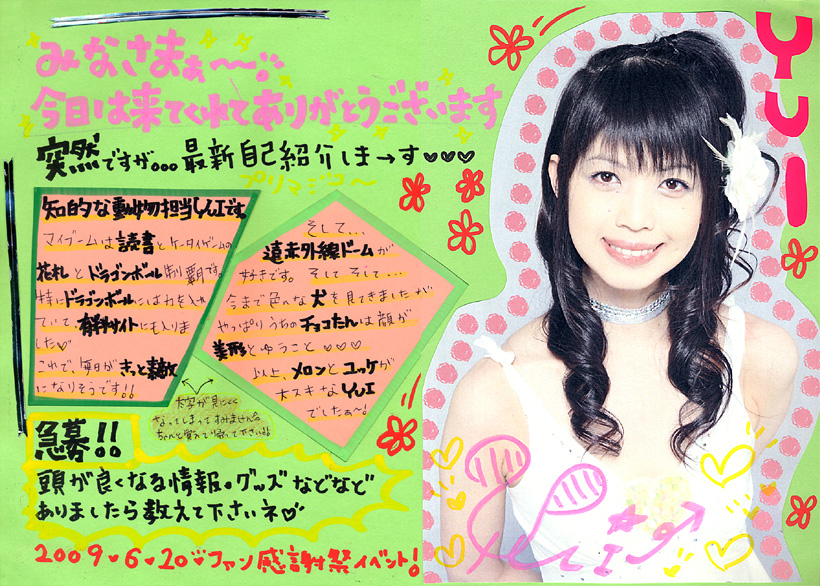 みなさまぁ〜〜。
今日は来てくれてありがとうございます
突然ですが...最新自己紹介しまーす♡♡♡
プリマジコ〜
知的な動物担当YUIです。
マイブームは読書とケータイゲームの
花札とドラゴンボール制覇です。
特にドラゴンボールには力を入れ
ていて、有料サイトにも入りま
した♡
これで、毎日がきっと素敵
になりそうです!!
そして...
遠赤外線ドームが
好きです。そしてそして...
今まで色んな犬を見てきましたが
やっぱりうちのチョコたんは顔が
美形とゆうこと♡♡♡
以上、メロンとユッケが
大スキなYUI
でしたぁ〜!
太字が見にくく
なってしまってすみません
急募!!
頭が良くなる情報。グッズなどなど
ありましたら教えて下さいネ♡
2009♥6♥20♡ファン感謝祭イベント!
YUI